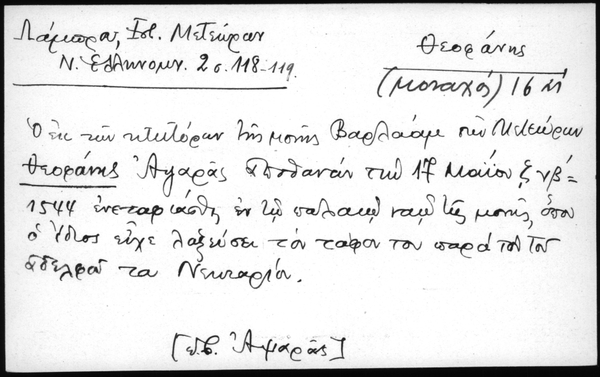 Λάμπρος, Ἱστ. Μετεώρων
Ν. Ἑλληνομν. 2 σ. 118-119.
Θεοφάνης
(μοναχός) 16 αἰ
Ὁ ἐκ τῶν κτιτόρων τῆς μονῆς Βαρλαάμ τῶν Μετεώρων
Θεοφάνης Ἀψαρᾶς ἀποθανών τήν 17 Μαΐου ζνβ΄=
1544 ἐνεταφιάσθη ἐν τῷ παλαιῷ ναῷ τῆς μονῆς, ὅπου
ὁ ἴδιος εἶχε λαξεύσει τόν τάφον του παρά τόν τοῦ
ἀδελφοῦ του Νεκταρίου.
[ Ἀψαρᾶς]